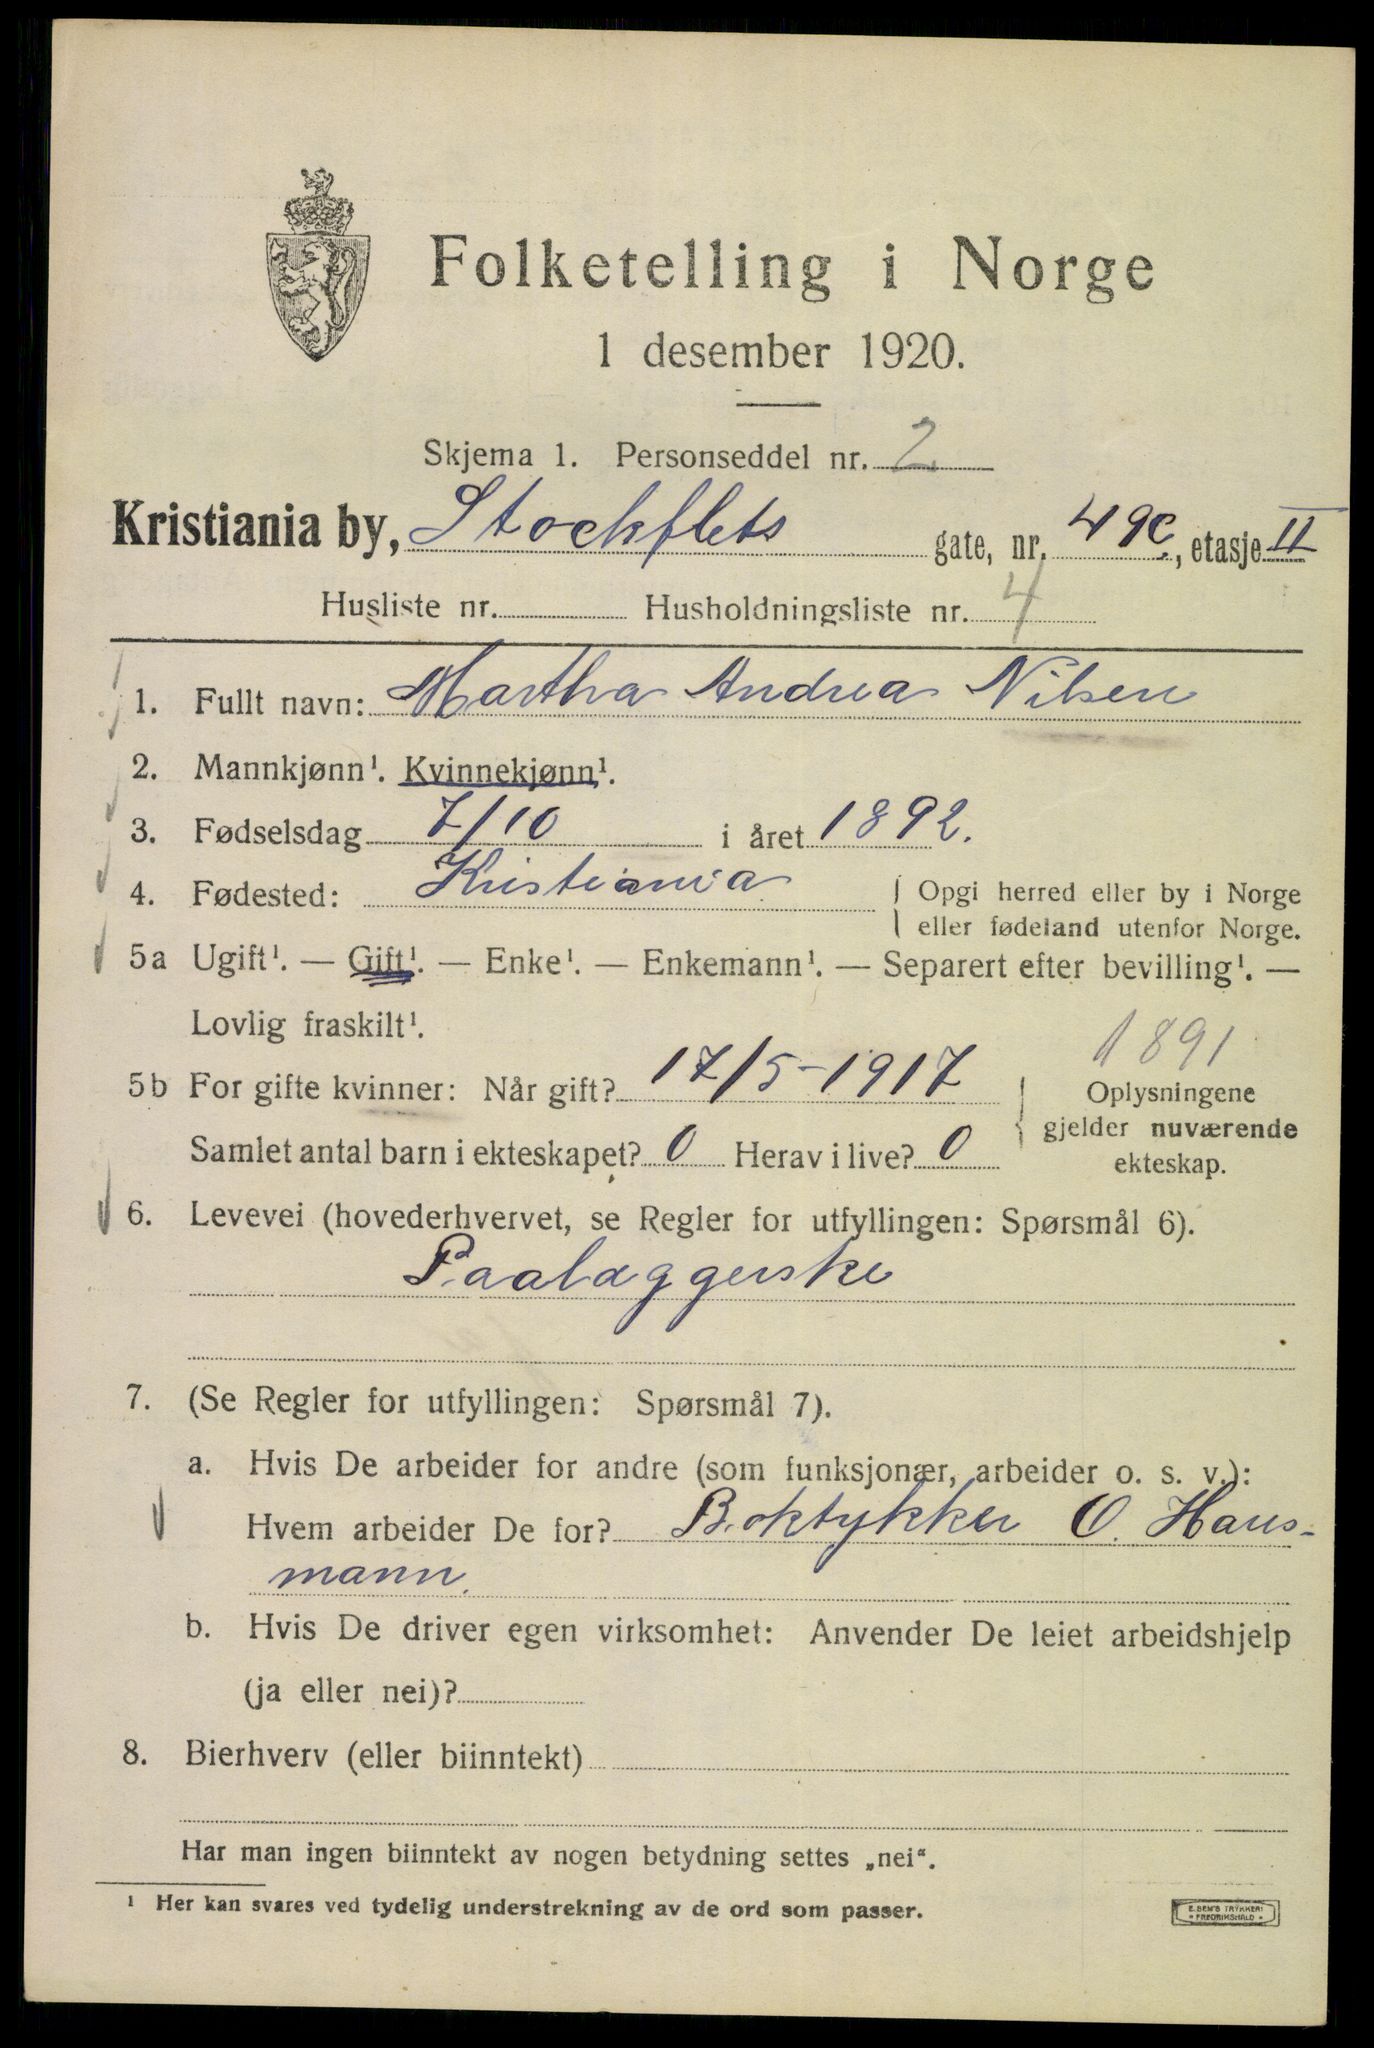 Folketelling i Norge
1 desember 1920.
Skjema 1. Personseddel nr. 2
Kristiania by, Stockflets gate, nr. 49c, etasje II
Husliste nr. Husholdningsliste nr. 4
1. Fullt navn: Martha Andrea Nilsen
2. Mannkjønn¹. Kvinnekjønn¹.
3. Fødselsdag 7/10 i året 1892.
4. Fødested: Kristiania Opgi herred eller by i Norge
eller fødeland utenfor Norge.
5a Ugift¹. — Gift¹. — Enke¹. — Enkemann¹. — Separert efter bevilling¹. —
Lovlig fraskilt¹.
1891
5b For gifte kvinner: Når gift? 17/5-1917 Oplysningene
gjelder nuværende
Samlet antal barn i ekteskapet? 0 Herav i live? 0 ekteskap.
6. Levevei (hovederhvervet, se Regler for utfyllingen: Spørsmål 6).
Paalæggerske
7. (Se Regler for utfyllingen: Spørsmål 7).
a. Hvis De arbeider for andre (som funksjonær, arbeider o. s. v.):
Hvem arbeider De for? Boktykker O. Haus-
mann.
b. Hvis De driver egen virksomhet: Anvender De leiet arbeidshjelp
(ja eller nei)?
8. Bierhverv (eller biinntekt)
Har man ingen biinntekt av nogen betydning settes „nei“.
¹ Her kan svares ved tydelig understrekning av de ord som passer.
E. SEM'S TRYKKERI
FREDRIKSHALD